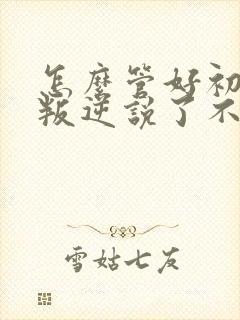 怎麼管好初
叛逆說了不
雪姑七友